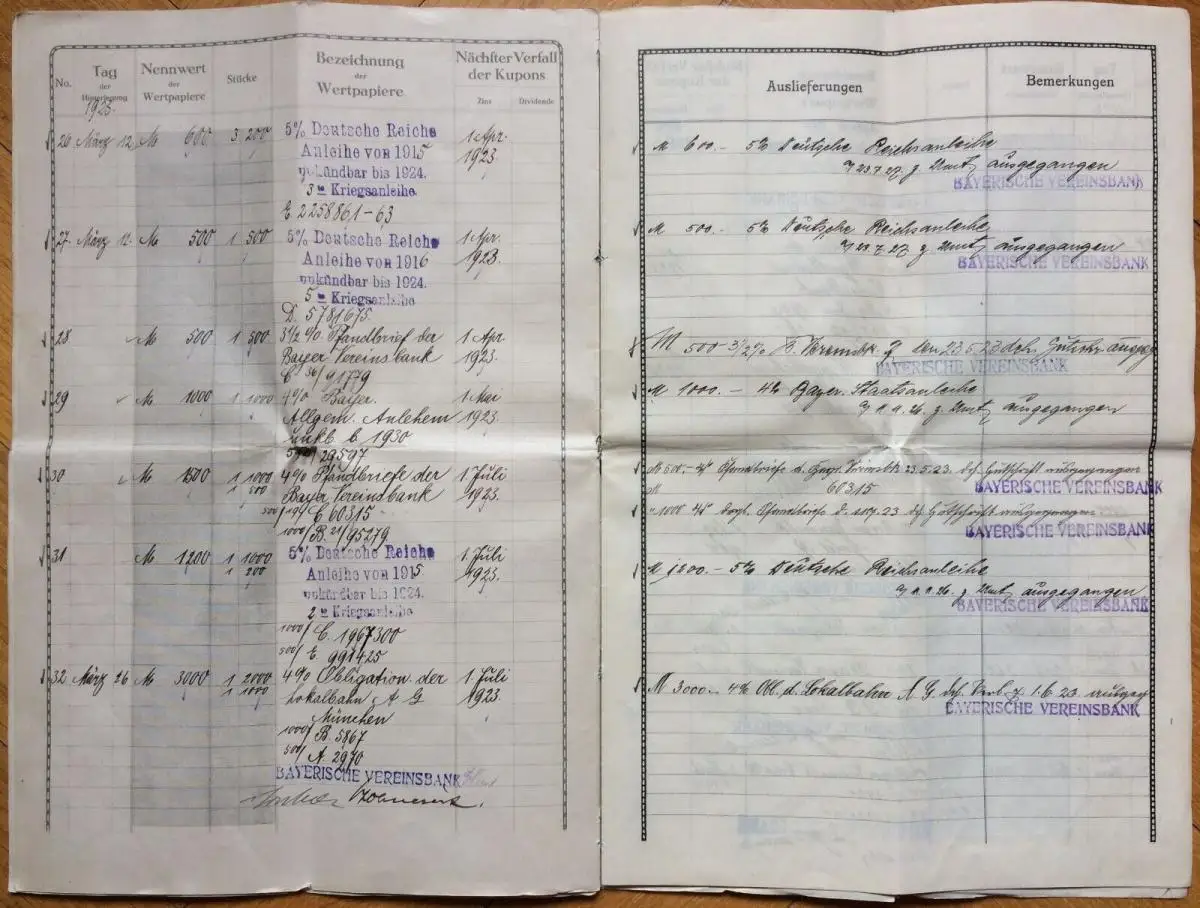 No.
Tag
der
Hinterlegung
Nennwert
der
Wertpapiere
Stücke
Bezeichnung
der
Wertpapiere
Nächster Verfall
der Kupons
Zins Dividende
1923.
26 März 12. M 600 3 200 5% Deutsche Reichs 1 Apr.
Anleihe von 1915 1923.
unkündbar bis 1924.
3te Kriegsanleihe
E 2258861-63
27. März 12. M 500 1 500 5% Deutsche Reichs 1 Apr.
Anleihe von 1916 1923.
unkündbar bis 1924.
5te Kriegsanleihe
D. 5781675.
28 M 500 1 500 3 1/2 % Pfandbrief der 1 Apr.
Bayer Vereinsbank 1923.
C 36/91779
29 M 1000 1 1000 4% Bayer. 1 Mai
Allgem. Anlehen 1923.
unkb. b. 1930
29597
30 M 1500 1 1000 4% Pfandbriefe der 1 Juli
1 500 Bayer Vereinsbank 1923.
C 60315
1000/B. 21/95279
31 M 1200 1 1000 5% Deutsche Reichs 1 Juli
1 200 Anleihe von 1915 1923.
unkündbar bis 1924.
2te Kriegsanleihe
1000/C. 1967300
E. 991425
32 März 26 M 3000 1 2000 4% Obligation der 1 Juli
1 1000 Lokalbahn A G 1923
München
B 5867
A 2970
BAYERISCHE VEREINSBANK
Auslieferungen Bemerkungen
M 600.- 5% Deutsche Reichsanleihe
23.7.27. ausgegangen
BAYERISCHE VEREINSBANK
M 500.- 5% Deutsche Reichsanleihe
23.7.27 ausgegangen
BAYERISCHE VEREINSBANK
M 500 3 1/2 % den 23.5.23 dch.
BAYERISCHE VEREINSBANK
M 1000.- 4% Bayer. Staatsanleihe
ausgegangen
M 500.- 4% 23.5.23. Gutschrift
60315
BAYERISCHE VEREINSBANK
1000 4% Gutschrift
BAYERISCHE VEREINSBANK
M 1200.- 5% Deutsche Reichsanleihe
ausgegangen
BAYERISCHE VEREINSBANK
M 3000.- 4% Obl. d. Lokalbahn A G 1.6.23
BAYERISCHE VEREINSBANK